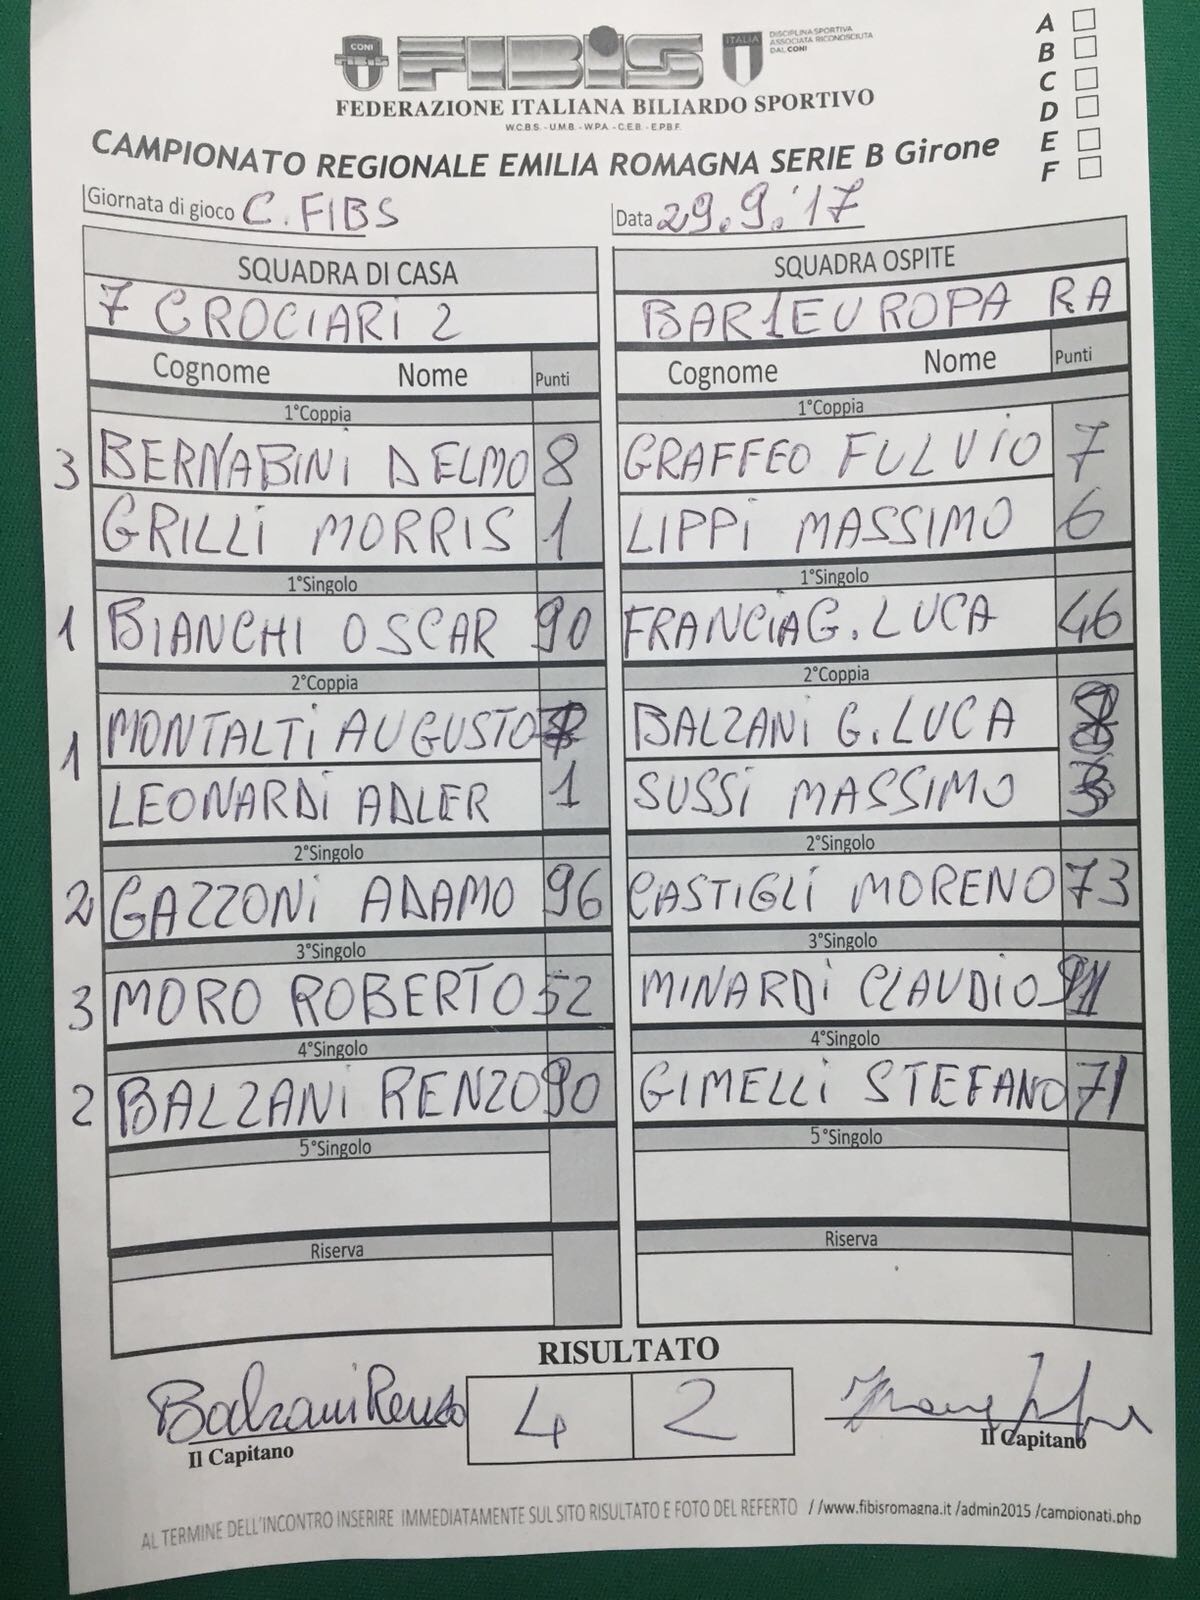 A
B
C
D
E
F
CONI
FIBiS
ITALIA
DISCIPLINA SPORTIVA
ASSOCIATA RICONOSCIUTA
DAL CONI
FEDERAZIONE ITALIANA BILIARDO SPORTIVO
W.C.B.S. - U.M.B. - W.P.A. - C.E.B. - E.P.B.F.
CAMPIONATO REGIONALE EMILIA ROMAGNA SERIE B Girone
Giornata di gioco C. FIBS Data 29.9.'17
SQUADRA DI CASA SQUADRA OSPITE
7 CROCIARI 2 BAR1EUROPA RA
Cognome Nome Punti Cognome Nome Punti
1°Coppia 1°Coppia
3 BERNABINI DELMO 8 GRAFFEO FULVIO 7
GRILLI MORRIS 1 LIPPI MASSIMO 6
1°Singolo 1°Singolo
1 BIANCHI OSCAR 90 FRANCIA G. LUCA 46
2°Coppia 2°Coppia
1 MONTALTI AUGUSTO BALZANI G. LUCA
LEONARDI ADLER 1 SUSSI MASSIMO
2°Singolo 2°Singolo
2 GAZZONI ADAMO 96 CASTIGLI MORENO 73
3°Singolo 3°Singolo
3 MORO ROBERTO 52 MINARDI CLAUDIO 91
4°Singolo 4°Singolo
2 BALZANI RENZO 90 GIMELLI STEFANO 71
5°Singolo 5°Singolo
Riserva Riserva
RISULTATO
Balzani Renzo 4 2
Il Capitano Il Capitano
AL TERMINE DELL'INCONTRO INSERIRE IMMEDIATAMENTE SUL SITO RISULTATO E FOTO DEL REFERTO //www.fibisromagna.it /admin2015 /campionati.php